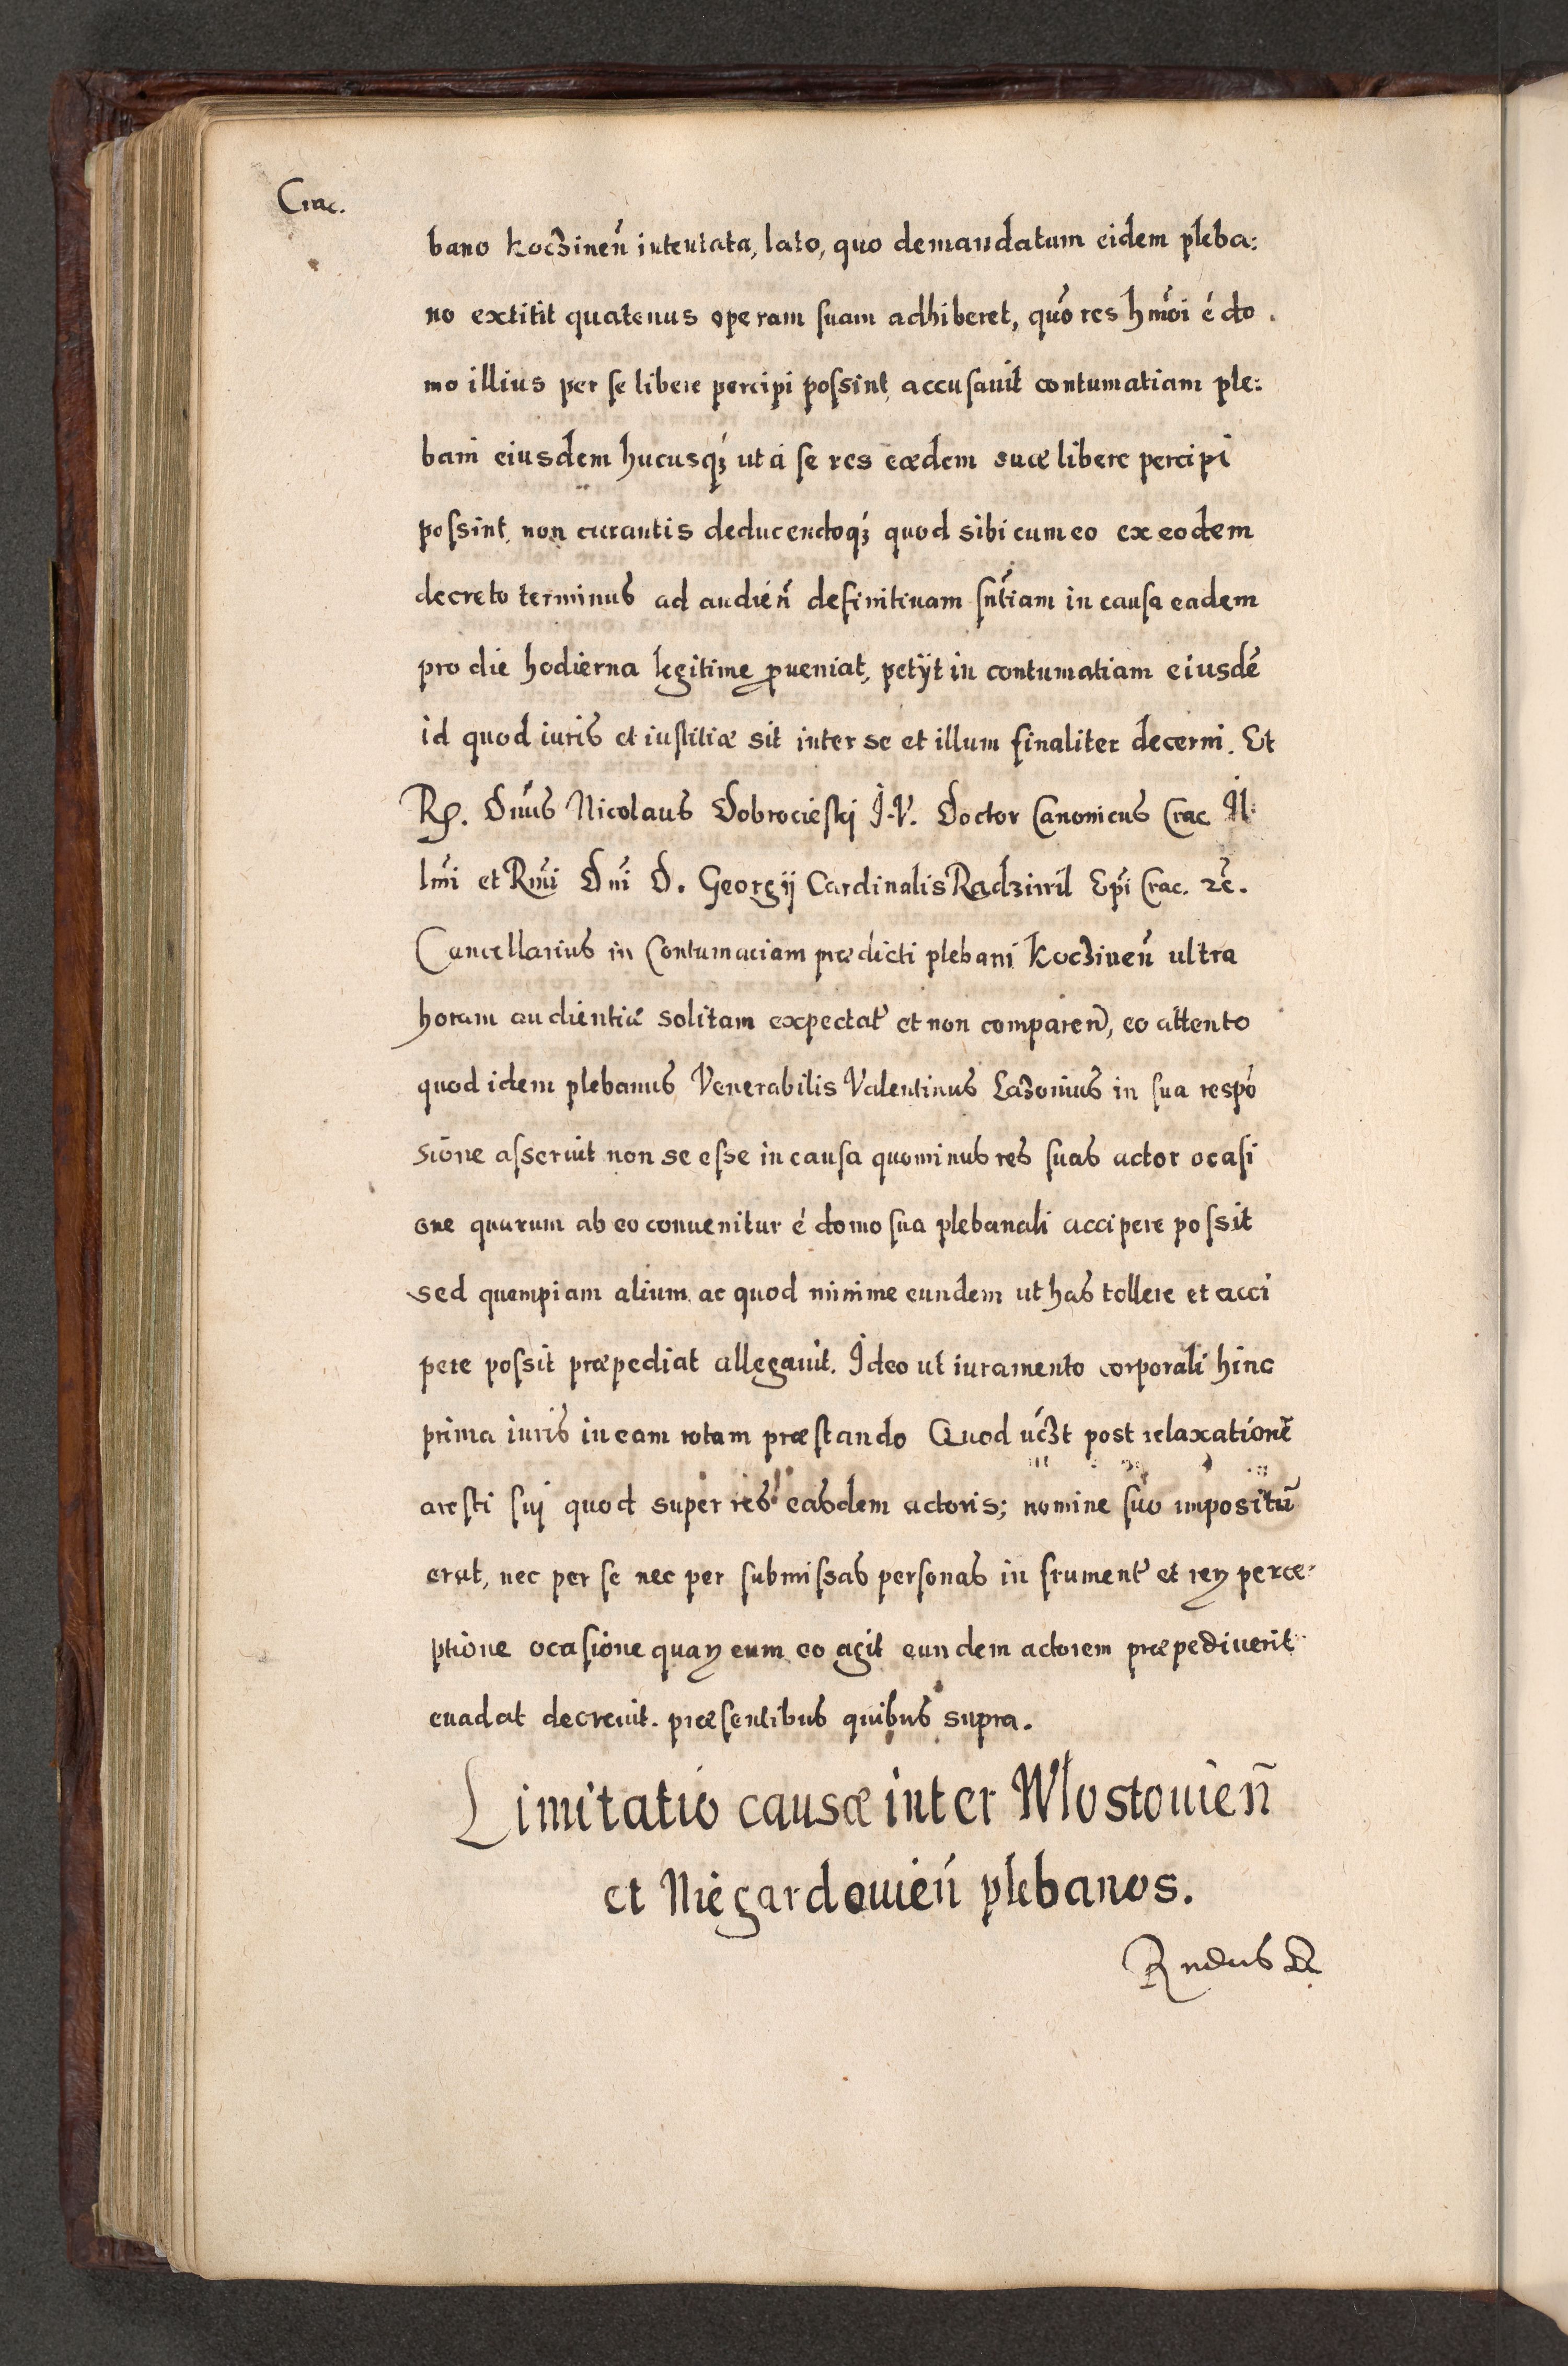 Crac.
bano Koczineñ intentata, lato, quo demandatum eidem pleba:
no extitit quatenus operam suam adhiberet, quo res hmoi é do
mo illius per se libere percipi possint, accusauit contumatiam ple:
bani eiusdem hucusqȝ ut á se res eædem suæ libere percipi
possint, non curantis deducendoqȝ quod sibi cum eo ex eodem
decreto terminus ad audień definitiuam sntiam in causa eadem
pro die hodierna legitime ꝓueniat, petÿt in contumatiam eiusdē
id quod iuris et iustitiæ sit inter se et illum finaliter decerni. Et
Rꝑ. Dnus Nicolaus Dobrocieskj J.V. Doctor Canonicus Crac. Il:
lmi et Rmi Dni D. Georgij Cardinalis Radziwil Epi Crac. ꝛc.
Cancellarius in Contumaciam prædicti plebani Koczineñ ultra
horam audientiæ solitam expectat et non compareñ, eo attento
quod idem plebanus Venerabilis Valentinus Lazonius in sua respō
sione asseruit non se esse in causa quominus res suas actor ocasi
one quarum ab eo conuenitur é domo sua plebanali accipere possit
sed quempiam alium, ac quod minime eundem ut has tollere et acci
pere possit præpediat allegauit. Ideo ut iuramento corporali hinc
prima iuris in eam rotam præstando Quod uczt post relaxationē
aresti suj quod super res easdem actoris; nomine suo impositū
erat, nec per se nec per submissas personas in frument et reꝝ perce-
ptione ocasione quaꝝ cum eo agit eundem actorem præpediuerit
euadat decreuit. præsentibus quibus supra.
Limitatio causæ inter Wlostouień
et Niegardouień plebanos.
Rndus D.